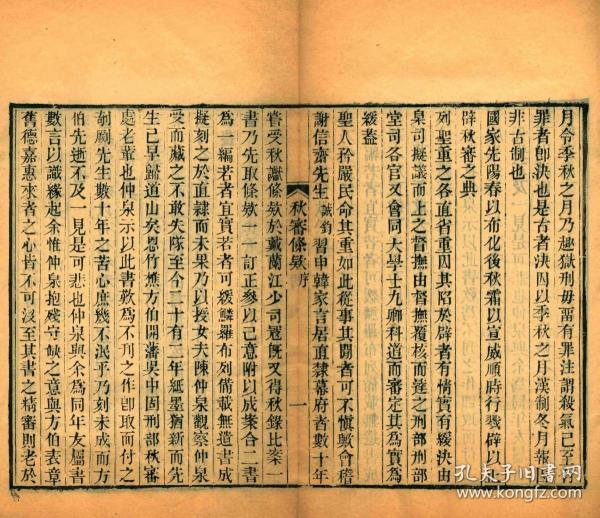 月令季秋之月乃趣獄刑毋畱有罪注謂殺氣已至有
罪者卽決也是古者決囚以季秋之月漢制冬月報囚
非古制也
國家先陽春以布化後秋霜以宣威順時行戮辟以
辟秋審之典
列聖重之各直省重囚其䧟於辟者有情實有緩決由
臬司擬議而上之督撫由督撫覆核而達之刑部刑部
堂司各官又會同大學士九卿科道而審定其爲實爲
緩蓋
聖人矜嚴民命其重如此從事其閒者可不愼歟會稽
謝信齋先生誠鈞習申韓家言居直隸幕府者數十年
秋審條欵 序
一
嘗受秋讞條欵於戴蘭江少司冦旣又得秋錄比案一
書乃先取條欵一一訂正參以己意附以成案合二書
爲一編若者宜實若者可緩鱗羅布列備載無遺書成
擬刻之於直隸而未果乃以授女夫陳仲泉觀察仲泉
受而藏之不敢失隊至今二十有二年紙墨猶新而先
生已早歸道山矣恩竹樵方伯開藩吳中固刑部秋審
處老輩也仲泉示以此書歎爲不刊之作卽取而付之
剞劂先生數十年之苦心庶幾不泯乎乃刻未成而方
伯先逝不及一見是可悲也仲泉與余爲同年友屬書
數言以識緣起余惟仲泉抱殘守缺之意與方伯表章
舊德嘉惠來者之心皆不可沒至其書之精審則老於
孔夫子旧书网
www.kongfz.com